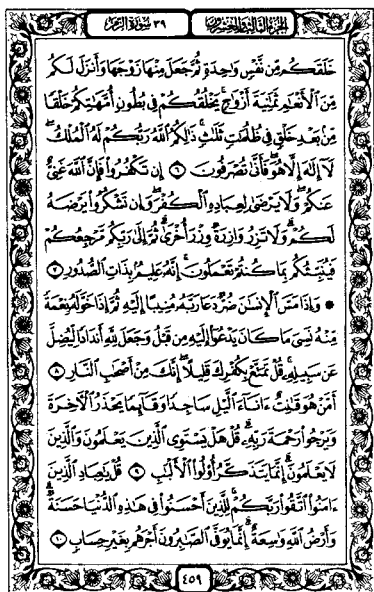 الجزء الثالث والعشرون ٣٩ سورة الزمر
خَلَقَكُم مِّن نَّفْسٍ وَٰحِدَةٍ ثُمَّ جَعَلَ مِنْهَا زَوْجَهَا وَأَنزَلَ لَكُم
مِّنَ ٱلْأَنْعَٰمِ ثَمَٰنِيَةَ أَزْوَٰجٍ ۚ يَخْلُقُكُمْ فِى بُطُونِ أُمَّهَٰتِكُمْ خَلْقًا
مِّنۢ بَعْدِ خَلْقٍ فِى ظُلُمَٰتٍ ثَلَٰثٍ ۚ ذَٰلِكُمُ ٱللَّهُ رَبُّكُمْ لَهُ ٱلْمُلْكُ ۖ
لَآ إِلَٰهَ إِلَّا هُوَ ۖ فَأَنَّىٰ تُصْرَفُونَ ٦ إِن تَكْفُرُوا۟ فَإِنَّ ٱللَّهَ غَنِىٌّ
عَنكُمْ ۖ وَلَا يَرْضَىٰ لِعِبَادِهِ ٱلْكُفْرَ ۖ وَإِن تَشْكُرُوا۟ يَرْضَهُ
لَكُمْ ۗ وَلَا تَزِرُ وَازِرَةٌ وِزْرَ أُخْرَىٰ ۗ ثُمَّ إِلَىٰ رَبِّكُم مَّرْجِعُكُمْ
فَيُنَبِّئُكُم بِمَا كُنتُمْ تَعْمَلُونَ ۚ إِنَّهُۥ عَلِيمٌۢ بِذَاتِ ٱلصُّدُورِ ٧
۞ وَإِذَا مَسَّ ٱلْإِنسَٰنَ ضُرٌّ دَعَا رَبَّهُۥ مُنِيبًا إِلَيْهِ ثُمَّ إِذَا خَوَّلَهُۥ نِعْمَةً
مِّنْهُ نَسِىَ مَا كَانَ يَدْعُوٓا۟ إِلَيْهِ مِن قَبْلُ وَجَعَلَ لِلَّهِ أَندَادًا لِّيُضِلَّ
عَن سَبِيلِهِۦ ۚ قُلْ تَمَتَّعْ بِكُفْرِكَ قَلِيلًا ۖ إِنَّكَ مِنْ أَصْحَٰبِ ٱلنَّارِ ٨
أَمَّنْ هُوَ قَٰنِتٌ ءَانَآءَ ٱلَّيْلِ سَاجِدًا وَقَآئِمًا يَحْذَرُ ٱلْءَاخِرَةَ
وَيَرْجُوا۟ رَحْمَةَ رَبِّهِۦ ۗ قُلْ هَلْ يَسْتَوِى ٱلَّذِينَ يَعْلَمُونَ وَٱلَّذِينَ
لَا يَعْلَمُونَ ۗ إِنَّمَا يَتَذَكَّرُ أُو۟لُوا۟ ٱلْأَلْبَٰبِ ٩ قُلْ يَٰعِبَادِ ٱلَّذِينَ
ءَامَنُوا۟ ٱتَّقُوا۟ رَبَّكُمْ ۚ لِلَّذِينَ أَحْسَنُوا۟ فِى هَٰذِهِ ٱلدُّنْيَا حَسَنَةٌ ۗ
وَأَرْضُ ٱللَّهِ وَٰسِعَةٌ ۗ إِنَّمَا يُوَفَّى ٱلصَّٰبِرُونَ أَجْرَهُم بِغَيْرِ حِسَابٍ ١٠
٤٥٩